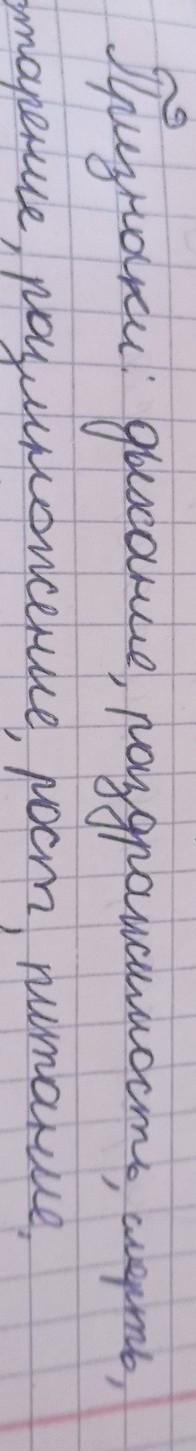 Признаки: дыхание, раздражимость, смерть,
старение, размножение, рост, питание,